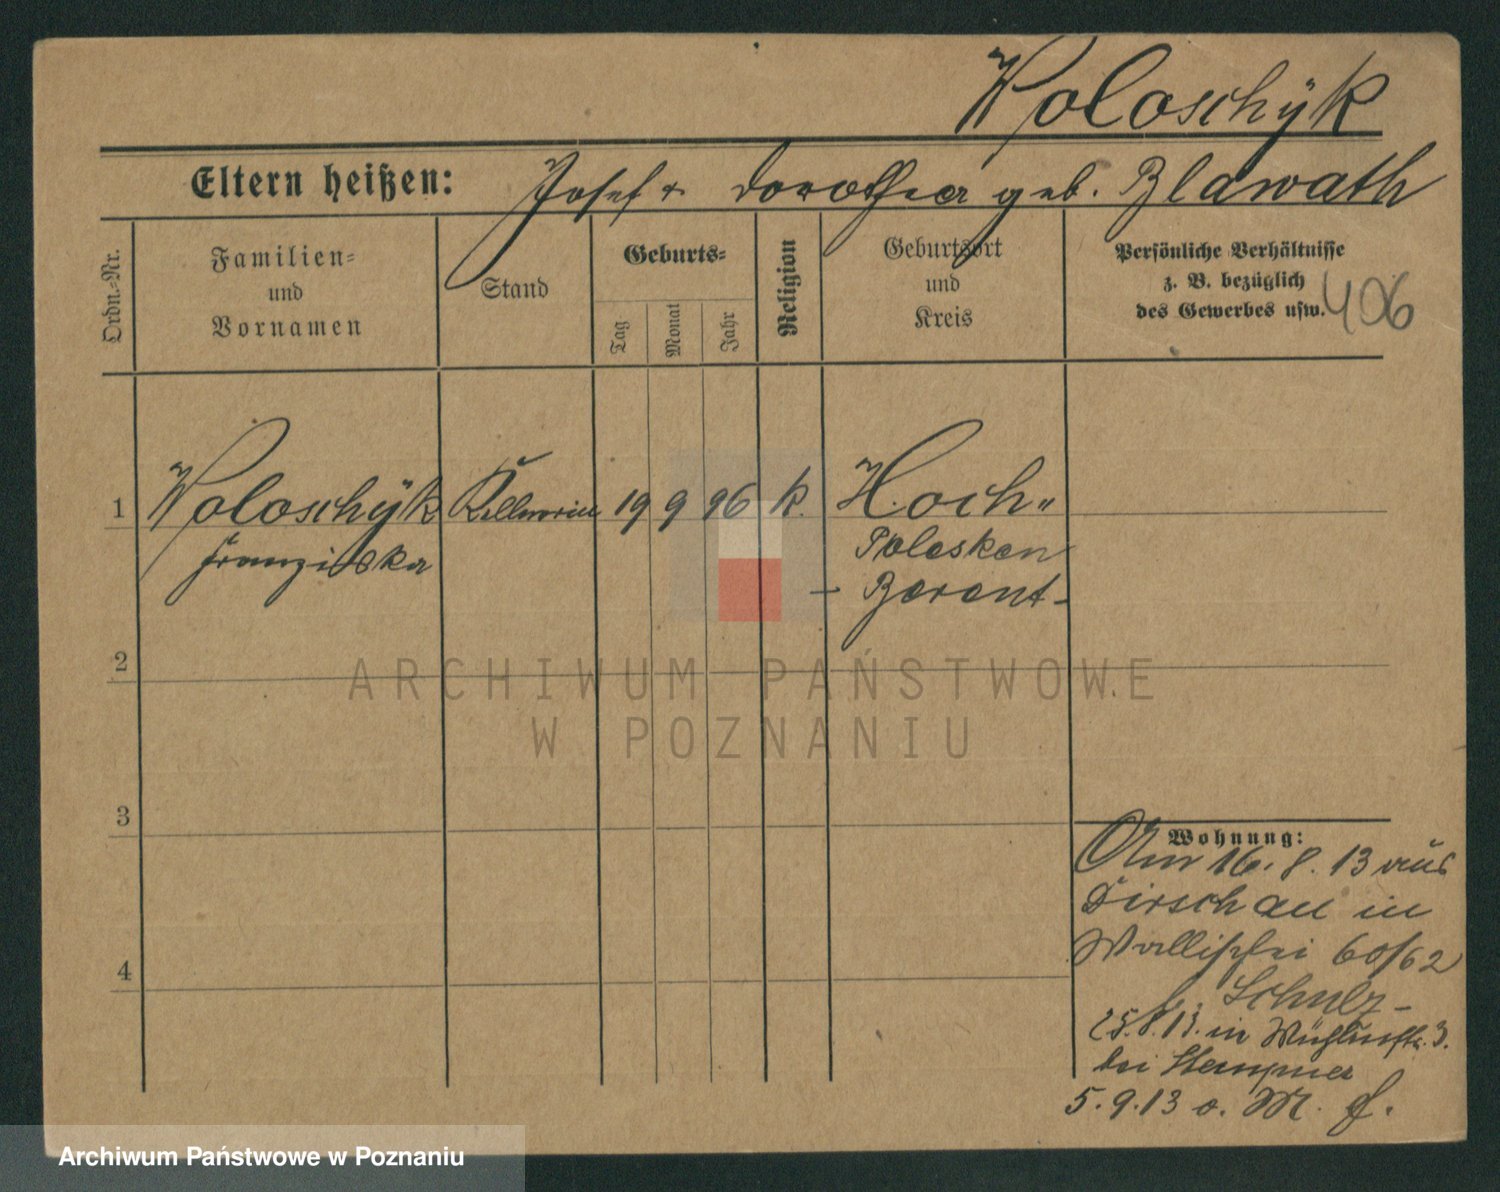 Woloschÿk
Eltern heißen: Josef & Dorothea geb. Blawath
Ordn.-Nr.
Familien-
und
Vornamen
Stand
Geburts-
Tag
Monat
Jahr
Religion
Geburtsort
und
Kreis
Persönliche Verhältnisse
z. B. bezüglich
des Gewerbes usw.
406
1 Woloschÿk Kellnerin 19 9 96 k. Hoch-
Franziska
Paleskan
- Berent -
2
3
4
Wohnung:
Am 16. 8. 13 aus
Dirschau in
Wallischei 60/62
Schulz -
25.8.13. in 3.
bei
5.9.13 o. M. f.
ARCHIWUM PAŃSTWOWE
W POZNANIU
Archiwum Państwowe w Poznaniu